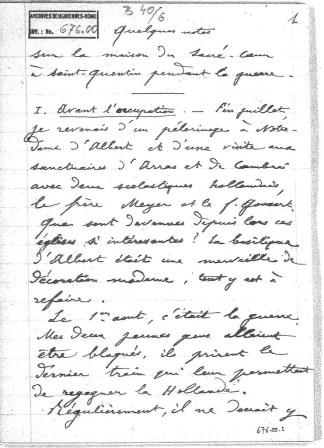 ARCHIVES DEHONIENNES-ROME
INV.: No. 676.00
B 40/6
1
Quelques notes
sur la maison du Sacré-Cœur
à Saint-Quentin pendant la guerre.
I. Avant l'occupation. — Fin juillet,
je revenais d'un pélerinage à Notre-
Dame d'Albert et d'une visite aux
sanctuaires d'Arras et de Cambrai
avec deux scolastiques hollandais,
le frère Meyer et le f.
Que sont devenues depuis lors ces
églises si intéressantes? La basilique
d'Albert était une merveille de
décoration moderne, tout y est à
refaire.
Le 1er août, c'était la guerre.
Mes deux jeunes gens allaient
être bloqués, ils prirent le
dernier train qui leur permettait
de regagner la Hollande.
Régulièrement, il ne devait y
676.00.1